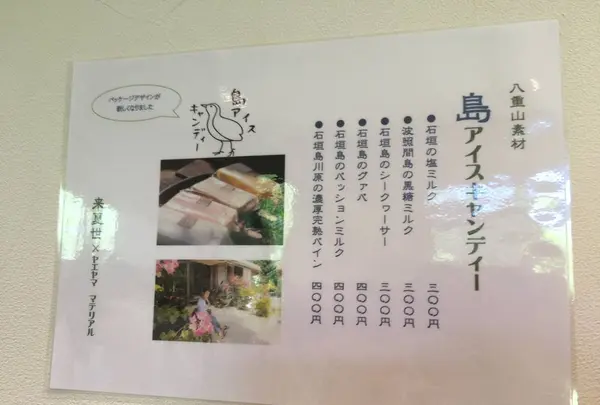 八重山素材
島アイスキャンディー
●石垣の塩ミルク 三〇〇円
●波照間島の黒糖ミルク 三〇〇円
●石垣島のシークヮーサー 三〇〇円
●石垣島のグァバ 四〇〇円
●石垣島のパッションミルク 四〇〇円
●石垣島川原の濃厚完熟パイン 四〇〇円
島アイス
キャンディー
パッケージデザインが
新しくなりました
来夏世×ヤエヤマ マテリアル